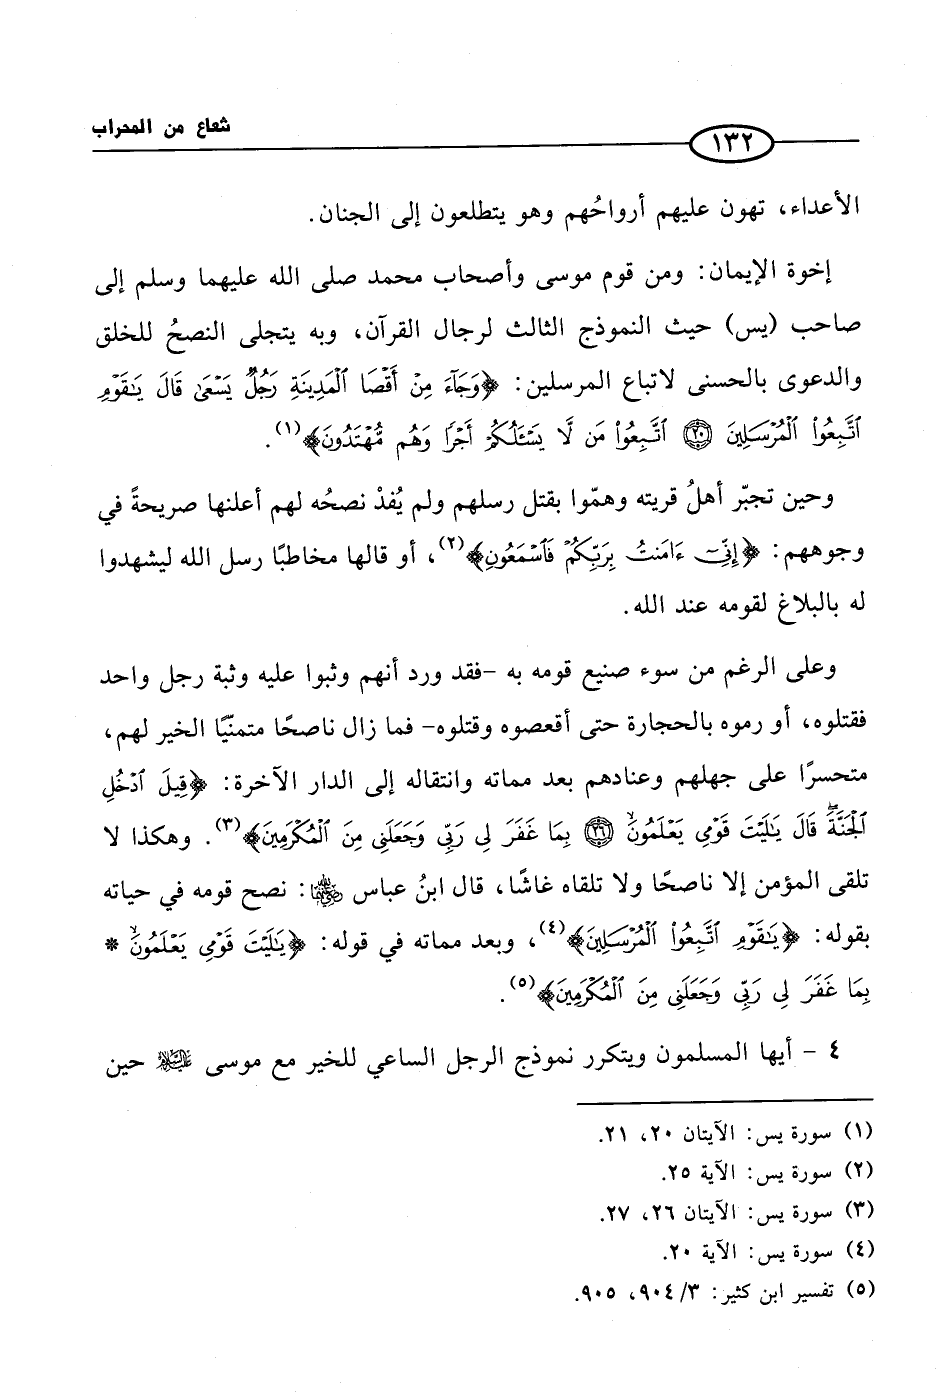 شعاع من المحراب
١٣٢
الأعداء، تهون عليهم أرواحُهم وهو يتطلعون إلى الجنان.
إخوة الإيمان: ومن قوم موسى وأصحاب محمد صلى الله عليهما وسلم إلى
صاحب (يس) حيث النموذج الثالث لرجال القرآن، وبه يتجلى النصحُ للخلق
والدعوى بالحسنى لاتباع المرسلين: ﴿وَجَآءَ مِنْ أَقْصَا ٱلْمَدِينَةِ رَجُلٌ يَسْعَىٰ قَالَ يَـٰقَوْمِ
ٱتَّبِعُوا۟ ٱلْمُرْسَلِينَ ۝٢٠ ٱتَّبِعُوا۟ مَن لَّا يَسْـَٔلُكُمْ أَجْرًا وَهُم مُّهْتَدُونَ﴾(١).
وحين تجبّر أهلُ قريته وهمّوا بقتل رسلهم ولم يُفدْ نصحُه لهم أعلنها صريحةً في
وجوههم: ﴿إِنِّىٓ ءَامَنتُ بِرَبِّكُمْ فَٱسْمَعُونِ﴾(٢)، أو قالها مخاطبًا رسل الله ليشهدوا
له بالبلاغ لقومه عند الله.
وعلى الرغم من سوء صنيع قومه به -فقد ورد أنهم وثبوا عليه وثبة رجل واحد
فقتلوه، أو رموه بالحجارة حتى أقعصوه وقتلوه- فما زال ناصحًا متمنيًا الخير لهم،
متحسرًا على جهلهم وعنادهم بعد مماته وانتقاله إلى الدار الآخرة: ﴿قِيلَ ٱدْخُلِ
ٱلْجَنَّةَ ۖ قَالَ يَـٰلَيْتَ قَوْمِى يَعْلَمُونَ ۝٢٦ بِمَا غَفَرَ لِى رَبِّى وَجَعَلَنِى مِنَ ٱلْمُكْرَمِينَ﴾(٣). وهكذا لا
تلقى المؤمن إلا ناصحًا ولا تلقاه غاشًا، قال ابنُ عباس رضي الله عنهما: نصح قومه في حياته
بقوله: ﴿يَـٰقَوْمِ ٱتَّبِعُوا۟ ٱلْمُرْسَلِينَ﴾(٤)، وبعد مماته في قوله: ﴿يَـٰلَيْتَ قَوْمِى يَعْلَمُونَ *
بِمَا غَفَرَ لِى رَبِّى وَجَعَلَنِى مِنَ ٱلْمُكْرَمِينَ﴾(٥).
٤ - أيها المسلمون ويتكرر نموذج الرجل الساعي للخير مع موسى عليه السلام حين
(١) سورة يس: الآيتان ٢٠، ٢١.
(٢) سورة يس: الآية ٢٥.
(٣) سورة يس: الآيتان ٢٦، ٢٧.
(٤) سورة يس: الآية ٢٠.
(٥) تفسير ابن كثير: ٣/ ٩٠٤، ٩٠٥.